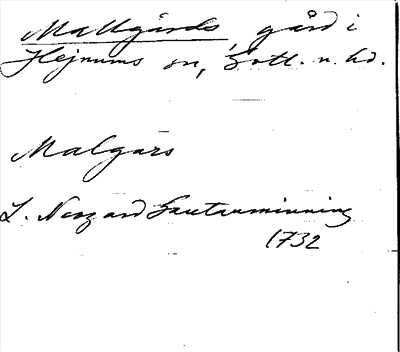 Mallgårds gård i
Hejnums sn, Gotl. n. hd.
Malgars
L. Neogard Gautauminning
1732